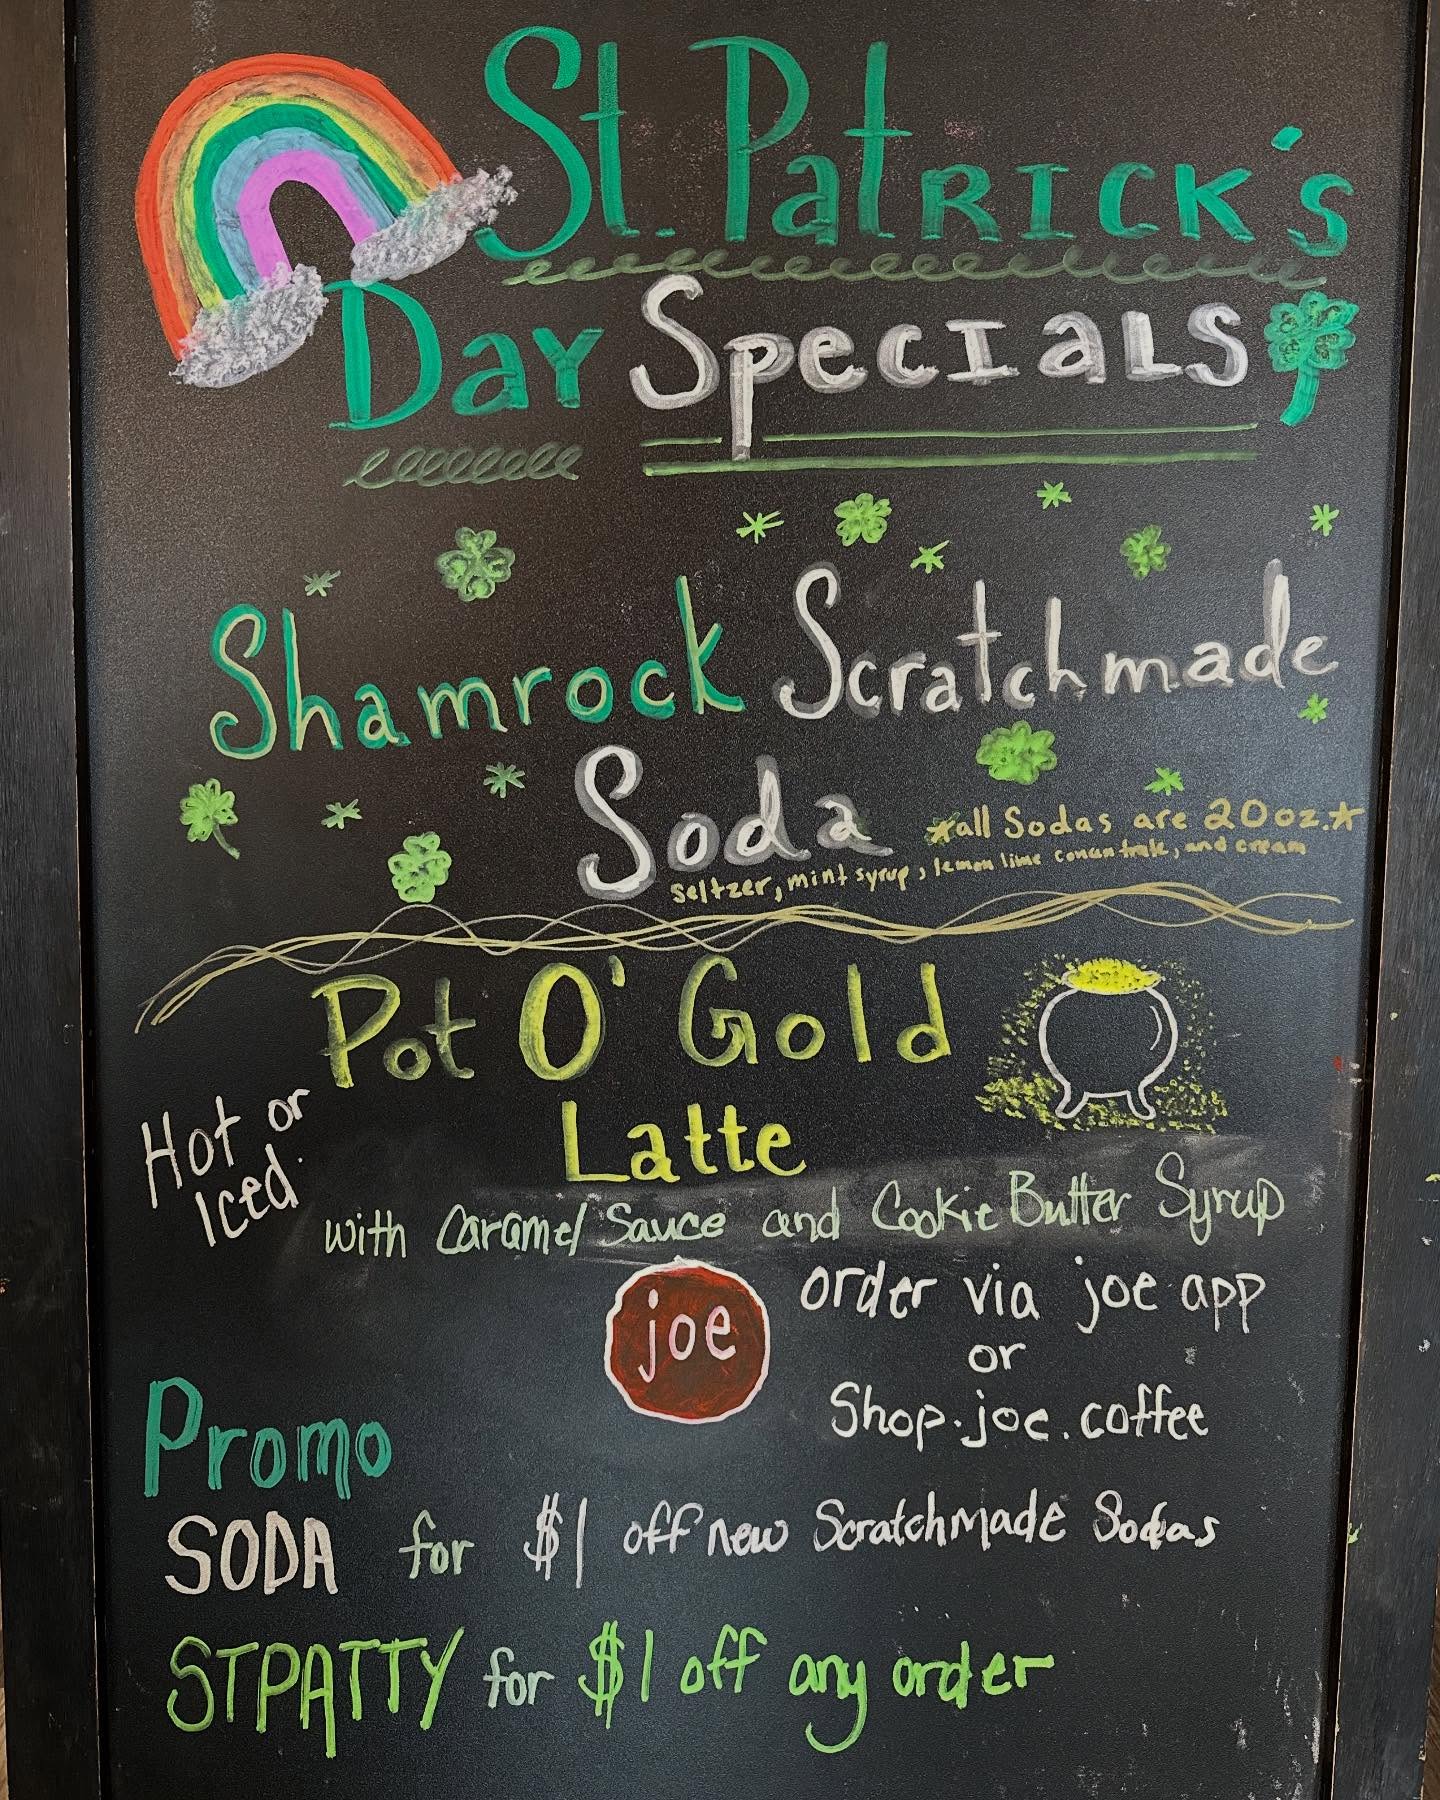 St. Patrick's
Day Specials
Shamrock Scratchmade
Soda
*all Sodas are 20oz.*
seltzer, mint syrup, lemon lime concentrate, and cream
Pot O' Gold
Latte
Hot or
Iced
with Caramel Sauce and Cookie Butter Syrup
joe
order via joe app
or
Shop.joe.coffee
Promo
SODA for $1 off new Scratchmade Sodas
STPATTY for $1 off any order